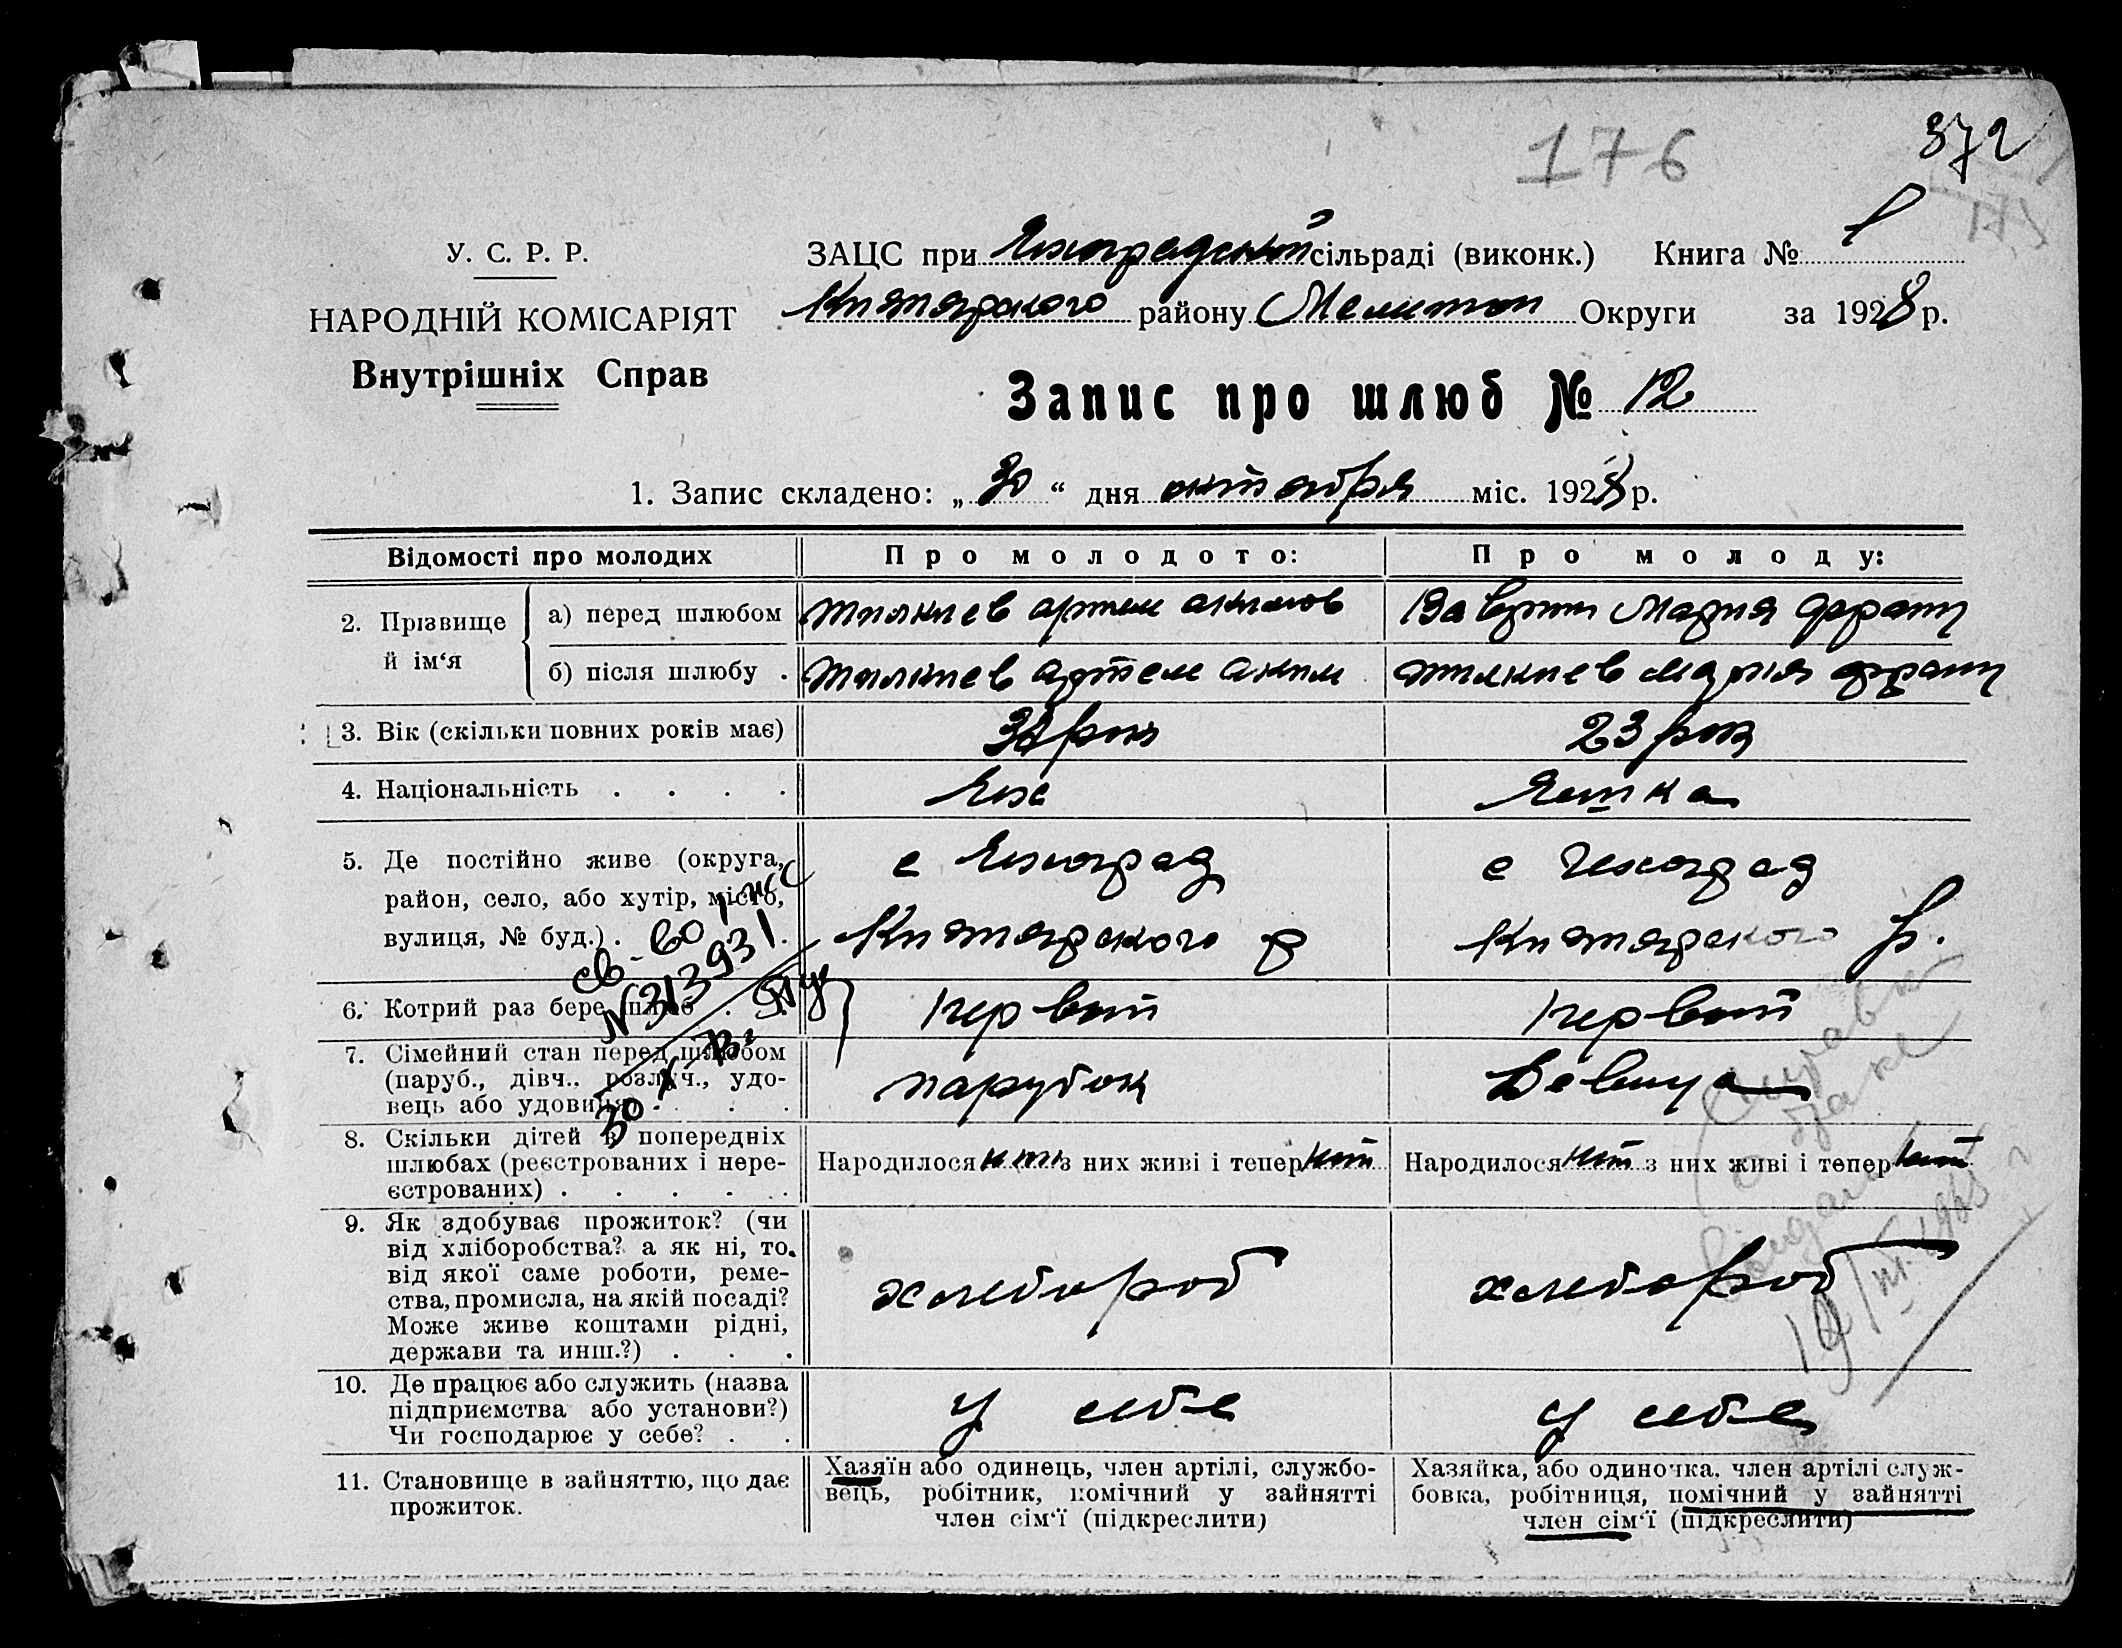 176
372
У. С. Р. Р.
НАРОДНІЙ КОМІСАРІЯТ
Внутрішніх Справ
ЗАЦС при сільраді (виконк.) Книга № 1
району Мелитоп Округи за 1928 р.
Запис про шлюб № 12
1. Запис складено: „ 30 “ дня октября міс. 1928 р.
Відомості про молодих
Про молодого:
Про молоду:
2. Прізвище й ім‘я
а) перед шлюбом
артем акимов
Мария
б) після шлюбу .
артем аким
мария
3. Вік (скільки повних років має)
рок
23 рок
4. Національність . . . .
Чех
Чешка
5. Де постійно живе (округа, район, село, або хутір, місто, вулиця, № буд.) . . .
с Чехоград
р
с Чехоград
р.
св-во
N 313931
30 X
6. Котрий раз бере шлюб . .
первий
первий
7. Сімейний стан перед шлюбом (паруб., дівч., розлуч., удовець або удовиця) . . .
парубок
Девица
8. Скільки дітей в попередніх шлюбах (реєстрованих і нереєстрованих) . . . . .
Народилося нет з них живі і тепер нет
Народилося нет з них живі і тепер нет
9. Як здобуває прожиток? (чи від хліборобства? а як ні, то від якої саме роботи, ремества, промисла, на якій посаді? Може живе коштами рідні, держави та инш.?) . . .
хлебороб
хлебороб
10. Де працює або служить (назва підприємства або установи?) Чи господарює у себе? . .
у себе
у себе
11. Становище в зайняттю, що дає прожиток.
Хазяїн або одинець, член артілі, службовець, робітник, помічний у зайнятті член сім‘ї (підкреслити)
Хазяйка, або одиночка, член артілі службовка, робітниця, помічний у зайнятті член сім‘ї (підкреслити)
Справка
о браке